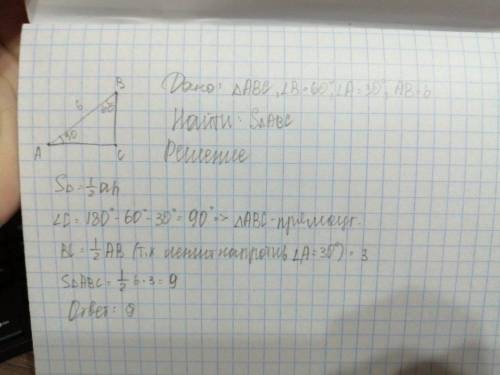 Дано: △ABC, ∠B=60°, ∠A=30°, AB=6
Найти: S△ABC
Решение
B
6
60°
30
A
C
S△=½ah
∠C=180°-60°-30°=90° => △ABC-прямоуг.
BC=½AB (т.к лежит напротив ∠A=30°)=3
S△ABC=½6·3=9
Ответ: 9